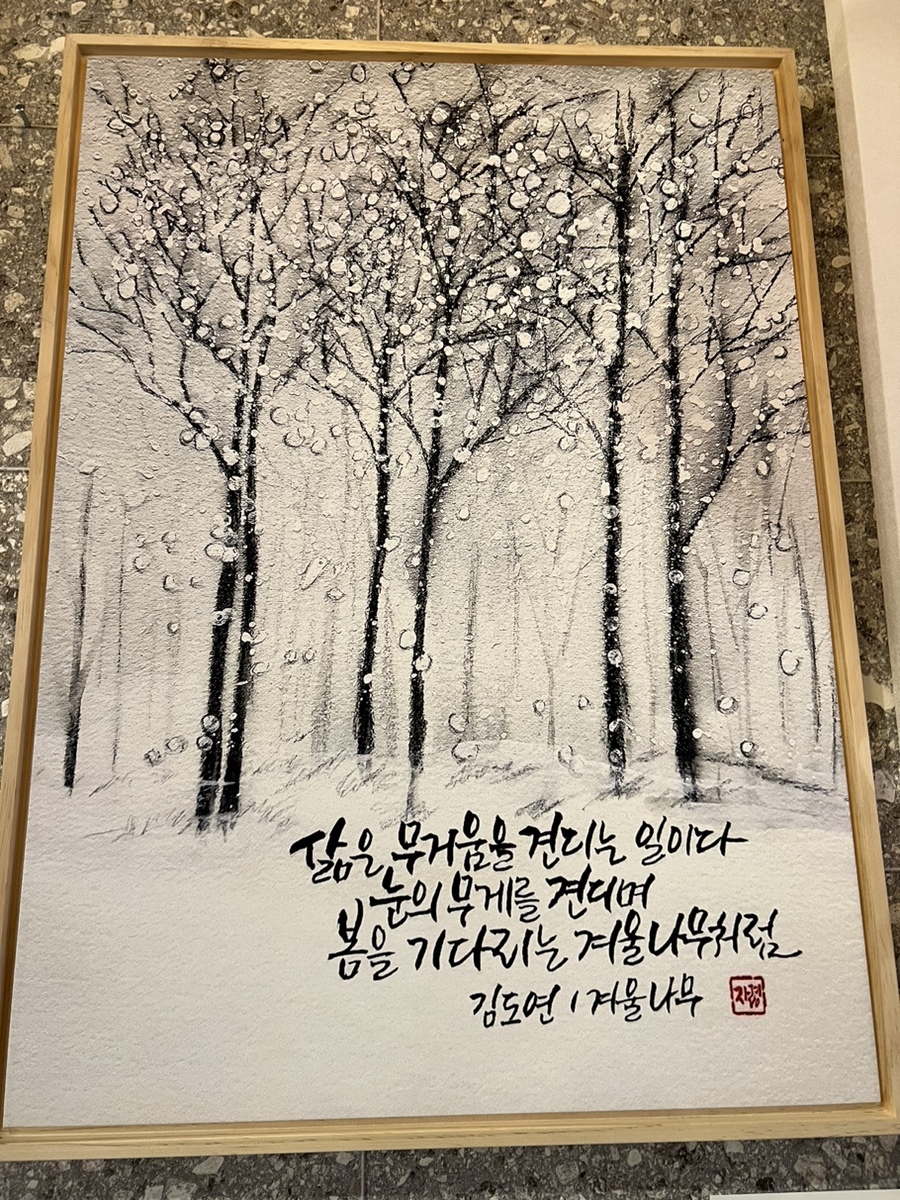 삶은 무거움을 견디는 일이다
눈의 무게를 견디며
봄을 기다리는 겨울나무처럼
김도연 / 겨울나무
자령